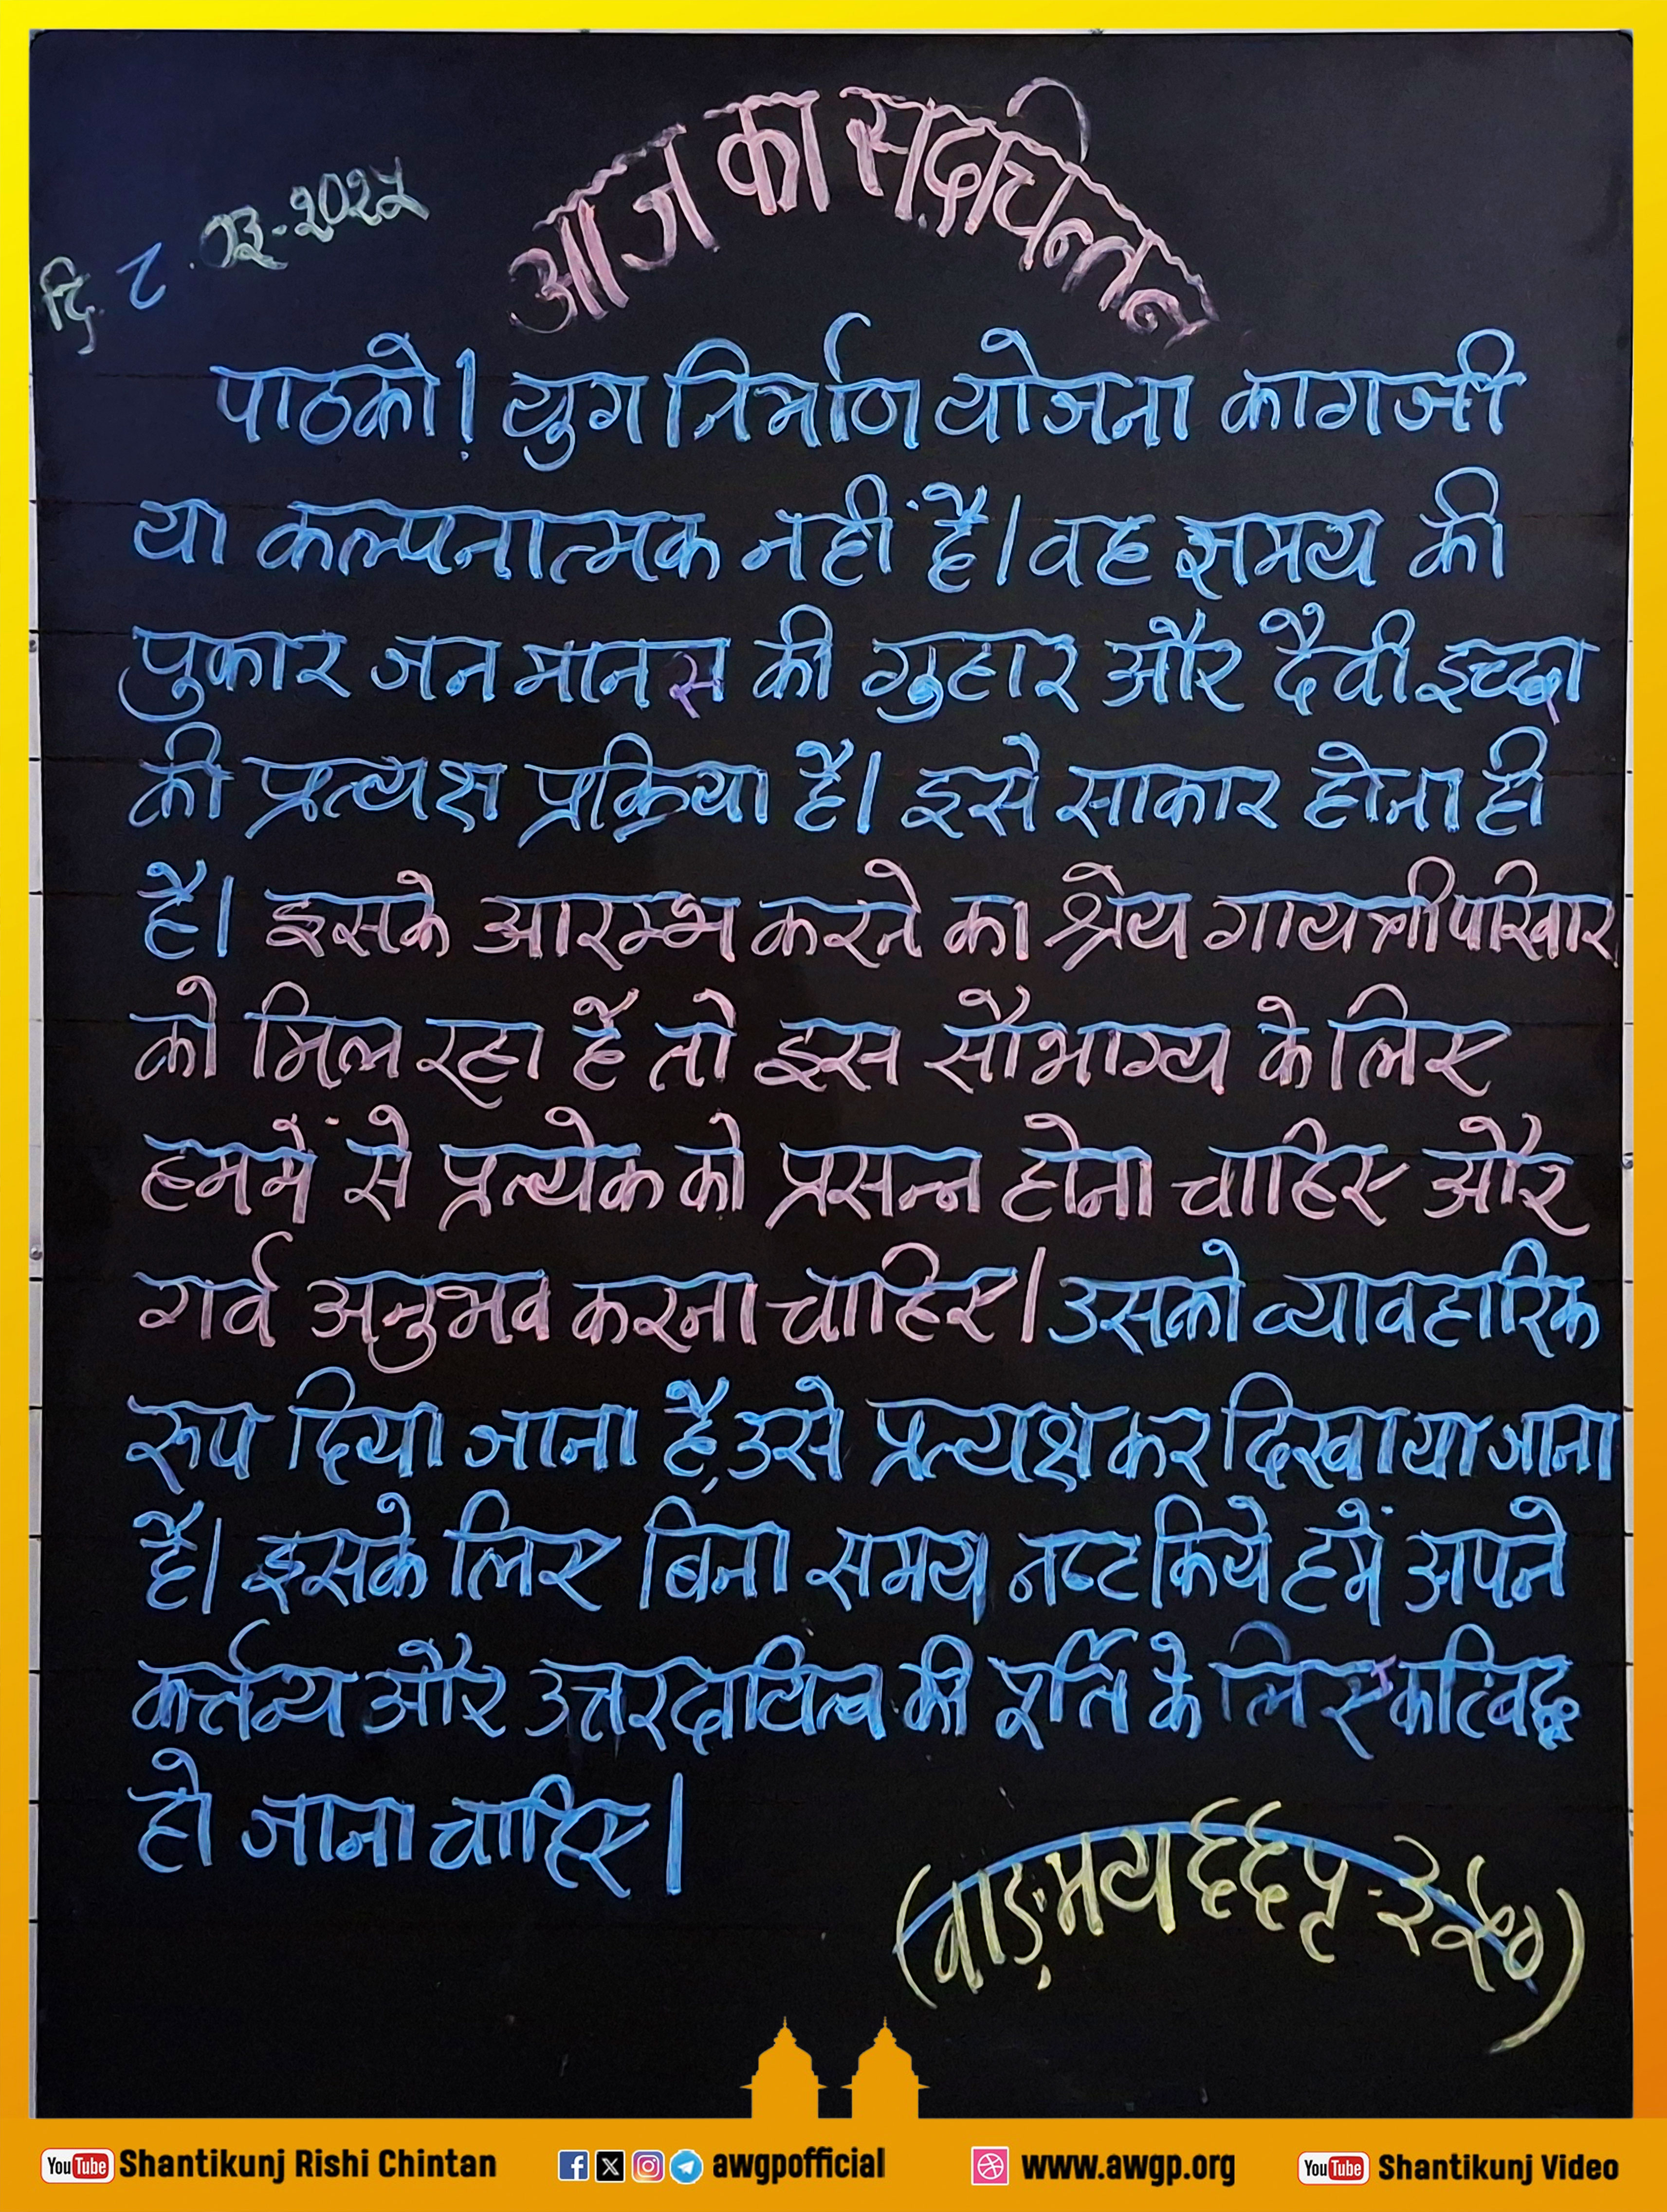 आज का सद्चिन्तन
दि. ८ .०३-२०२५
पाठको! युग निर्माण योजना कागजी
या कल्पनात्मक नहीं है। वह समय की
पुकार जन मानस की गुहार और दैवी इच्छा
की प्रत्यक्ष प्रक्रिया है। इसे साकार होना ही
है। इसके आरम्भ करने का श्रेय गायत्री परिवार
को मिल रहा है तो इस सौभाग्य के लिए
हममें से प्रत्येक को प्रसन्न होना चाहिए और
गर्व अनुभव करना चाहिए। उसको व्यावहारिक
रूप दिया जाना है, उसे प्रत्यक्ष कर दिखाया जाना
है। इसके लिए बिना समय नष्ट किये हमें अपने
कर्त्तव्य और उत्तरदायित्व की पूर्ति के लिए कटिबद्ध
हो जाना चाहिए।
(वाङ्मय ६६ पृ-
YouTube Shantikunj Rishi Chintan awgpofficial www.awgp.org YouTube Shantikunj Video